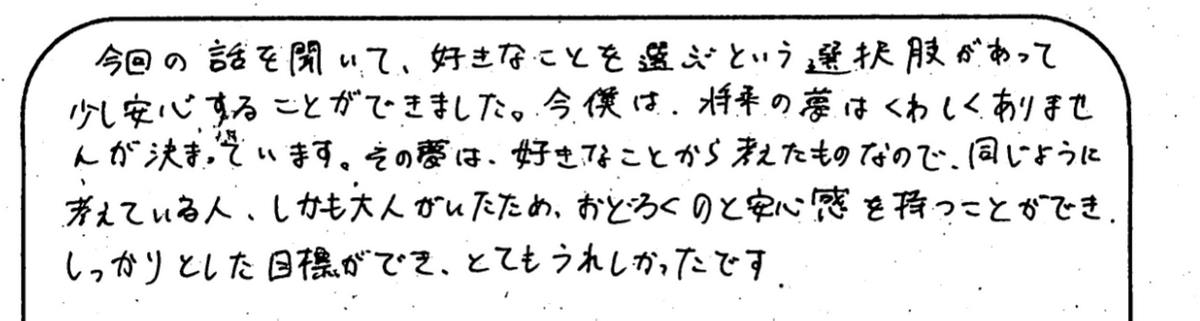 今回の話を聞いて、好きなことを選ぶという選択肢があって
少し安心することができました。今僕は、将来の夢はくわしくありませ
んが決まっています。その夢は、好きなことから考えたものなので、同じように
考えている人、しかも大人がいたため、おどろくのと安心感を持つことができ、
しっかりとした目標ができ、とてもうれしかったです